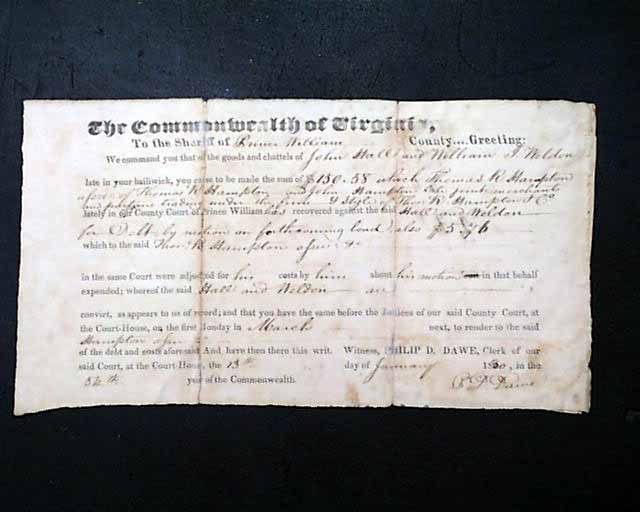 The Commonwealth of Virginia,
To the Sheriff of Prince William County....Greeting:
We command you that of the goods and chattels of John Hall and William J. Weldon
late in your bailiwick, you cause to be made the sum of $130.58 which Thomas R Hampton
assee of Thomas R Hampton and John Hampton late joint merchants
and partners trading under the firm & style of Thos. R. Hampton & Co
lately in our County Court of Prince William has recovered against the said Hall and Weldon
for Debt, by motion on forthcoming bond also $5.76
which to the said Thos. R Hampton assee &c
in the same Court were adjudged for his costs by him about his motion in that behalf
expended; whereof the said Hall and Weldon are
convict, as appears to us of record; and that you have the same before the Justices of our said County Court, at
the Court-House, on the first Monday in March next, to render to the said
Hampton assee &c
of the debt and costs aforesaid. And have then there this writ. Witness, PHILIP D. DAWE, Clerk of our
said Court, at the Court-House, the 13th day of January 1830, in the
54th year of the Commonwealth. P. D. Dawe